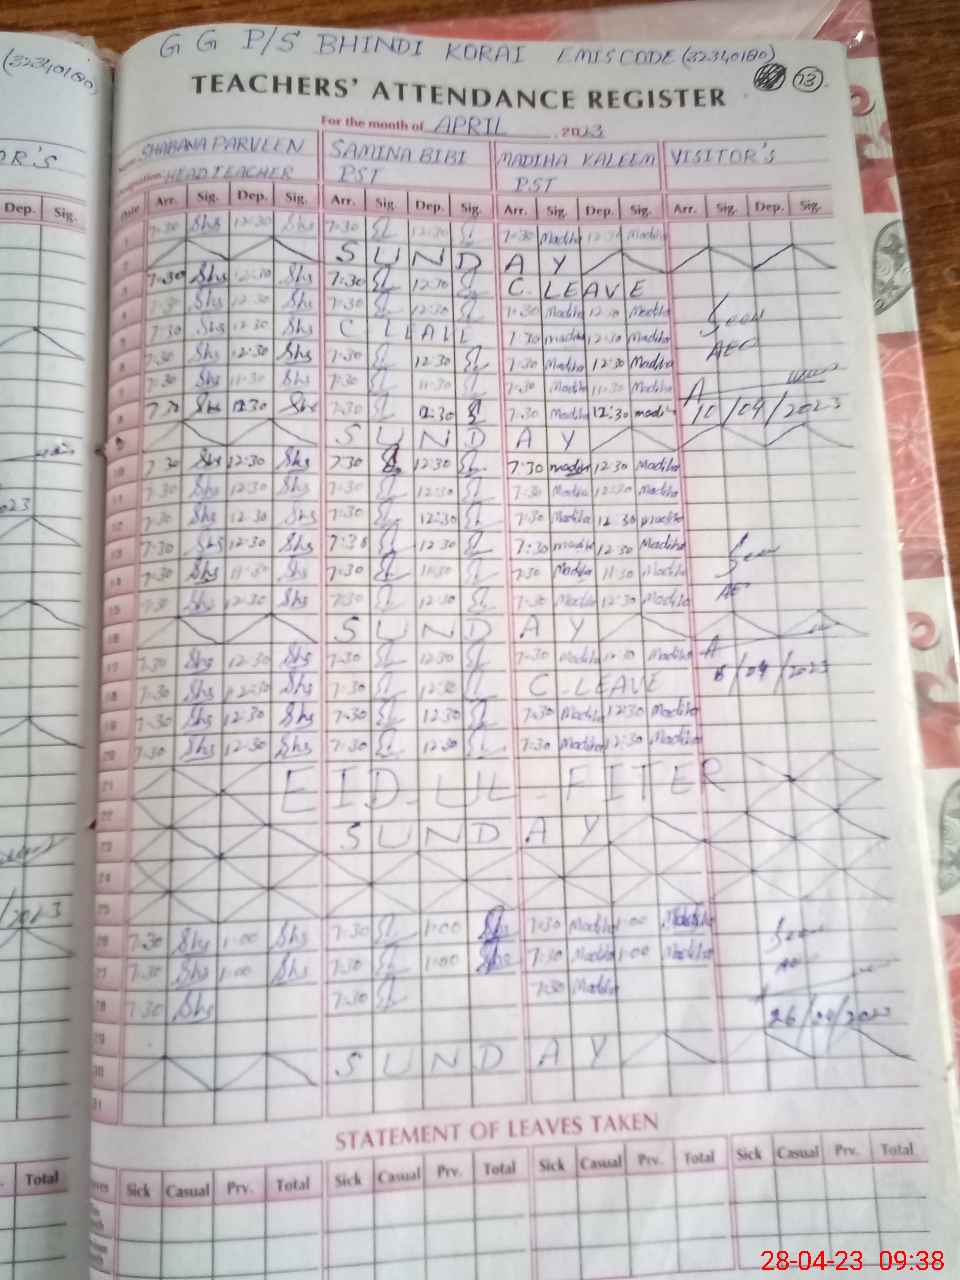 (32340180)
G G P/S BHINDI KORAI EMIS CODE (32340180)
TEACHERS' ATTENDANCE REGISTER 13
For the month of APRIL 2023
SHABANA PARVEEN SAMINA BIBI MADIHA KALEEM VISITOR'S
HEAD TEACHER PST PST
OR'S
Dep. Sig.
Date Arr. Sig. Dep. Sig. Arr. Sig. Dep. Sig. Arr. Sig. Dep. Sig. Arr. Sig. Dep. Sig.
1 7:30 Shs 12:30 Shs 7:30 12:30 7:30 Madiha 12:30 Madiha
2 SUNDAY
3 7:30 Shs 12:30 Shs 7:30 12:30 C. LEAVE
4 7:30 Shs 12:30 Shs 7:30 12:30 7:30 Madiha 12:30 Madiha Seen
5 7:30 Shs 12:30 Shs C LEAVE 7:30 Madiha 12:30 Madiha AEO
6 7:30 Shs 12:30 Shs 7:30 12:30 7:30 Madiha 12:30 Madiha
7 7:30 Shs 11:30 Shs 7:30 11:30 7:30 Madiha 11:30 Madiha
8 7:30 Shs 12:30 Shs 7:30 12:30 7:30 Madiha 12:30 Madiha 10/04/2023
9 SUNDAY
10 7:30 Shs 12:30 Shs 7:30 12:30 7:30 Madiha 12:30 Madiha
11 7:30 Shs 12:30 Shs 7:30 12:30 7:30 Madiha 12:30 Madiha
12 7:30 Shs 12:30 Shs 7:30 12:30 7:30 Madiha 12:30 Madiha
13 7:30 Shs 12:30 Shs 7:30 12:30 7:30 Madiha 12:30 Madiha Seen
14 7:30 Shs 11:30 Shs 7:30 11:30 7:30 Madiha 11:30 Madiha AEO
15 7:30 Shs 12:30 Shs 7:30 12:30 7:30 Madiha 12:30 Madiha
16 SUNDAY
17 7:30 Shs 12:30 Shs 7:30 12:30 7:30 Madiha 12:30 Madiha
18 7:30 Shs 12:30 Shs 7:30 12:30 C. LEAVE /04/2023
19 7:30 Shs 12:30 Shs 7:30 12:30 7:30 Madiha 12:30 Madiha
20 7:30 Shs 12:30 Shs 7:30 12:30 7:30 Madiha 12:30 Madiha
21 EID-UL-FITER
22
23 SUNDAY
24
25
26 7:30 Shs 1:00 Shs 7:30 1:00 Shs 7:30 Madiha 1:00 Madiha Seen
27 7:30 Shs 1:00 Shs 7:30 1:00 Shs 7:30 Madiha 1:00 Madiha AEO
28 7:30 Shs 7:30 7:30 Madiha 26/04/2023
29
30 SUNDAY
31
STATEMENT OF LEAVES TAKEN
Total
Sick Casual Prv. Total Sick Casual Prv. Total Sick Casual Prv. Total Sick Casual Prv. Total
28-04-23 09:38